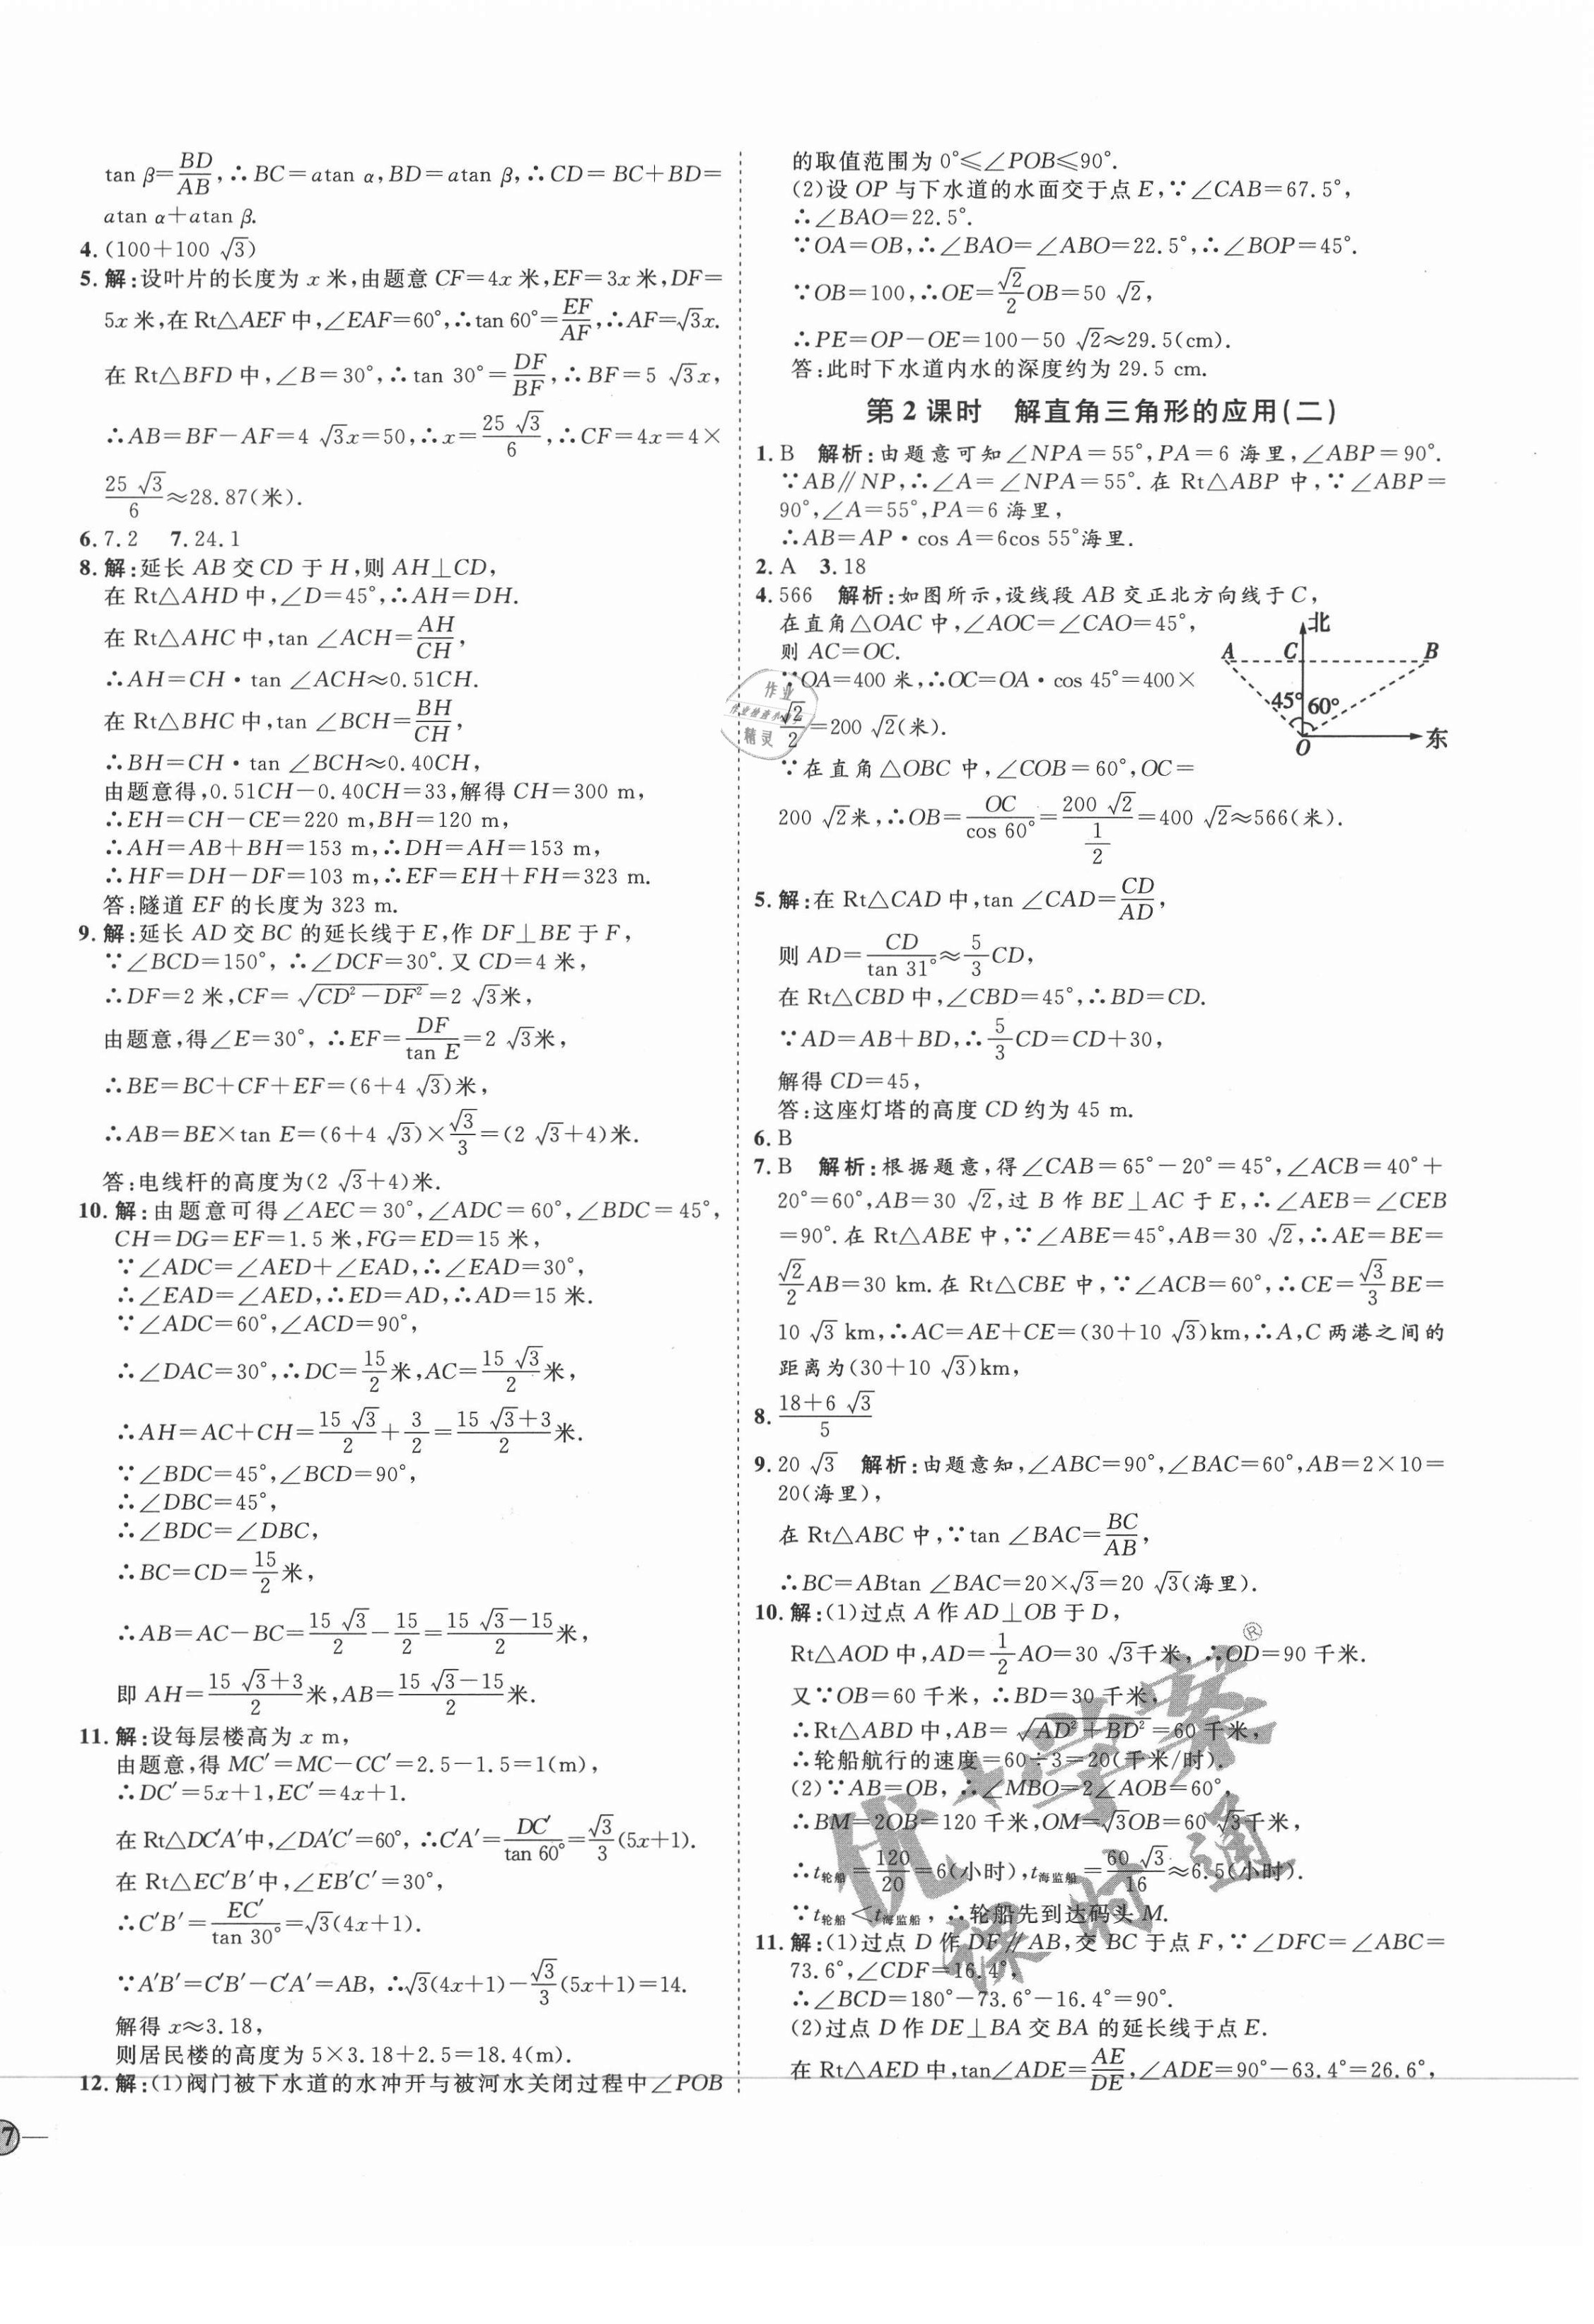 tan β=BD/AB,∴BC=atan α,BD=atan β,∴CD=BC+BD=
atan α+atan β.
4.(100+100√3)
5.解:设叶片的长度为x米,由题意CF=4x米,EF=3x米,DF=
5x米,在Rt△AEF中,∠EAF=60°,∴tan 60°=EF/AF,∴AF=√3x.
在Rt△BFD中,∠B=30°,∴tan 30°=DF/BF,∴BF=5√3x,
∴AB=BF-AF=4√3x=50,∴x=25√3/6,∴CF=4x=4×
25√3/6≈28.87(米).
6.7.2 7.24.1
8.解:延长AB交CD于H,则AH⊥CD,
在Rt△AHD中,∠D=45°,∴AH=DH.
在Rt△AHC中,tan ∠ACH=AH/CH,
∴AH=CH·tan ∠ACH≈0.51CH.
在Rt△BHC中,tan ∠BCH=BH/CH,
∴BH=CH·tan ∠BCH≈0.40CH,
由题意得,0.51CH-0.40CH=33,解得CH=300 m,
∴EH=CH-CE=220 m,BH=120 m,
∴AH=AB+BH=153 m,∴DH=AH=153 m,
∴HF=DH-DF=103 m,∴EF=EH+FH=323 m.
答:隧道EF的长度为323 m.
9.解:延长AD交BC的延长线于E,作DF⊥BE于F,
∵∠BCD=150°,∴∠DCF=30°.又CD=4米,
∴DF=2米,CF=√(CD²-DF²)=2√3米,
由题意,得∠E=30°,∴EF=DF/tan E=2√3米,
∴BE=BC+CF+EF=(6+4√3)米,
∴AB=BE×tan E=(6+4√3)×√3/3=(2√3+4)米.
答:电线杆的高度为(2√3+4)米.
10.解:由题意可得∠AEC=30°,∠ADC=60°,∠BDC=45°,
CH=DG=EF=1.5米,FG=ED=15米,
∵∠ADC=∠AED+∠EAD,∴∠EAD=30°,
∴∠EAD=∠AED,∴ED=AD,∴AD=15米.
∵∠ADC=60°,∠ACD=90°,
∴∠DAC=30°,∴DC=15/2米,AC=15√3/2米,
∴AH=AC+CH=15√3/2+3/2=(15√3+3)/2米.
∵∠BDC=45°,∠BCD=90°,
∴∠DBC=45°,
∴∠BDC=∠DBC,
∴BC=CD=15/2米,
∴AB=AC-BC=15√3/2-15/2=(15√3-15)/2米,
即AH=(15√3+3)/2米,AB=(15√3-15)/2米.
11.解:设每层楼高为x m,
由题意,得MC′=MC-CC′=2.5-1.5=1(m),
∴DC′=5x+1,EC′=4x+1.
在Rt△DC′A′中,∠DA′C′=60°,∴C′A′=DC′/tan 60°=√3/3(5x+1).
在Rt△EC′B′中,∠EB′C′=30°,
∴C′B′=EC′/tan 30°=√3(4x+1).
∵A′B′=C′B′-C′A′=AB,∴√3(4x+1)-√3/3(5x+1)=14.
解得x≈3.18,
则居民楼的高度为5×3.18+2.5=18.4(m).
12.解:(1)阀门被下水道的水冲开与被河水关闭过程中∠POB
7
的取值范围为0°≤∠POB≤90°.
(2)设OP与下水道的水面交于点E,∵∠CAB=67.5°,
∴∠BAO=22.5°.
∵OA=OB,∴∠BAO=∠ABO=22.5°,∴∠BOP=45°.
∵OB=100,∴OE=√2/2OB=50√2,
∴PE=OP-OE=100-50√2≈29.5(cm).
答:此时下水道内水的深度约为29.5 cm.
第2课时 解直角三角形的应用(二)
1.B 解析:由题意可知∠NPA=55°,PA=6海里,∠ABP=90°.
∵AB∥NP,∴∠A=∠NPA=55°.在Rt△ABP中,∵∠ABP=
90°,∠A=55°,PA=6海里,
∴AB=AP·cos A=6cos 55°海里.
2.A 3.18
4.566 解析:如图所示,设线段AB交正北方向线于C,
在直角△OAC中,∠AOC=∠CAO=45°,
则AC=OC.
∵OA=400米,∴OC=OA·cos 45°=400×
√2/2=200√2(米).
∵在直角△OBC中,∠COB=60°,OC=
200√2米,∴OB=OC/cos 60°=200√2/(1/2)=400√2≈566(米).
北
A C B
45° 60°
O 东
5.解:在Rt△CAD中,tan ∠CAD=CD/AD,
则AD=CD/tan 31°≈5/3CD,
在Rt△CBD中,∠CBD=45°,∴BD=CD.
∵AD=AB+BD,∴5/3CD=CD+30,
解得CD=45,
答:这座灯塔的高度CD约为45 m.
6.B
7.B 解析:根据题意,得∠CAB=65°-20°=45°,∠ACB=40°+
20°=60°,AB=30√2,过B作BE⊥AC于E,∴∠AEB=∠CEB
=90°.在Rt△ABE中,∵∠ABE=45°,AB=30√2,∴AE=BE=
√2/2AB=30 km.在Rt△CBE中,∵∠ACB=60°,∴CE=√3/3BE=
10√3 km,∴AC=AE+CE=(30+10√3)km,∴A,C两港之间的
距离为(30+10√3)km,
8.(18+6√3)/5
9.20√3 解析:由题意知,∠ABC=90°,∠BAC=60°,AB=2×10=
20(海里),
在Rt△ABC中,∵tan ∠BAC=BC/AB,
∴BC=ABtan ∠BAC=20×√3=20√3(海里).
10.解:(1)过点A作AD⊥OB于D,
Rt△AOD中,AD=1/2AO=30√3千米,∴OD=90千米.
又∵OB=60千米,∴BD=30千米,
∴Rt△ABD中,AB=√(AD²+BD²)=60千米,
∴轮船航行的速度=60÷3=20(千米/时).
(2)∵AB=OB,∴∠MBO=2∠AOB=60°,
∴BM=2OB=120千米,OM=√3OB=60√3千米,
∴t轮船=120/20=6(小时),t海监船=60√3/16≈6.5(小时).
∵t轮船<t海监船,∴轮船先到达码头M.
11.解:(1)过点D作DF∥AB,交BC于点F,∵∠DFC=∠ABC=
73.6°,∠CDF=16.4°,
∴∠BCD=180°-73.6°-16.4°=90°.
(2)过点D作DE⊥BA交BA的延长线于点E.
在Rt△AED中,tan∠ADE=AE/DE,∠ADE=90°-63.4°=26.6°,
作业
精灵
优+学案
课时通
®